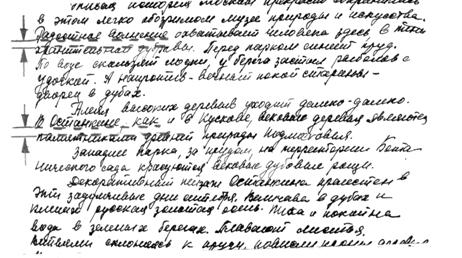 в этом легко обозримом музее природы и искусства.
Радостное волнение охватывает человека здесь, в тени
гигантских дубравы. Перед парком синеет пруд.
По воде скользят лодки, у берега застыл рыболов с
удочкой. А напротив - вечный покой старины -
дворец в дубах.
Аллея высоких деревьев уходит далеко-далеко.
В Останкине, как и в Кускове, вековые деревья являются
памятниками древней природы Подмосковья.
Западнее парка, за прудом, на территории Бота-
нического сада красуются вековые дубовые рощи.
Декоративный пейзаж Останкина прелестен в
эти задумчивые дни октября. Величава в дубах и
кленах русская золотая осень. Тиха и покойна
вода в зеленых берегах. Плавают листья.